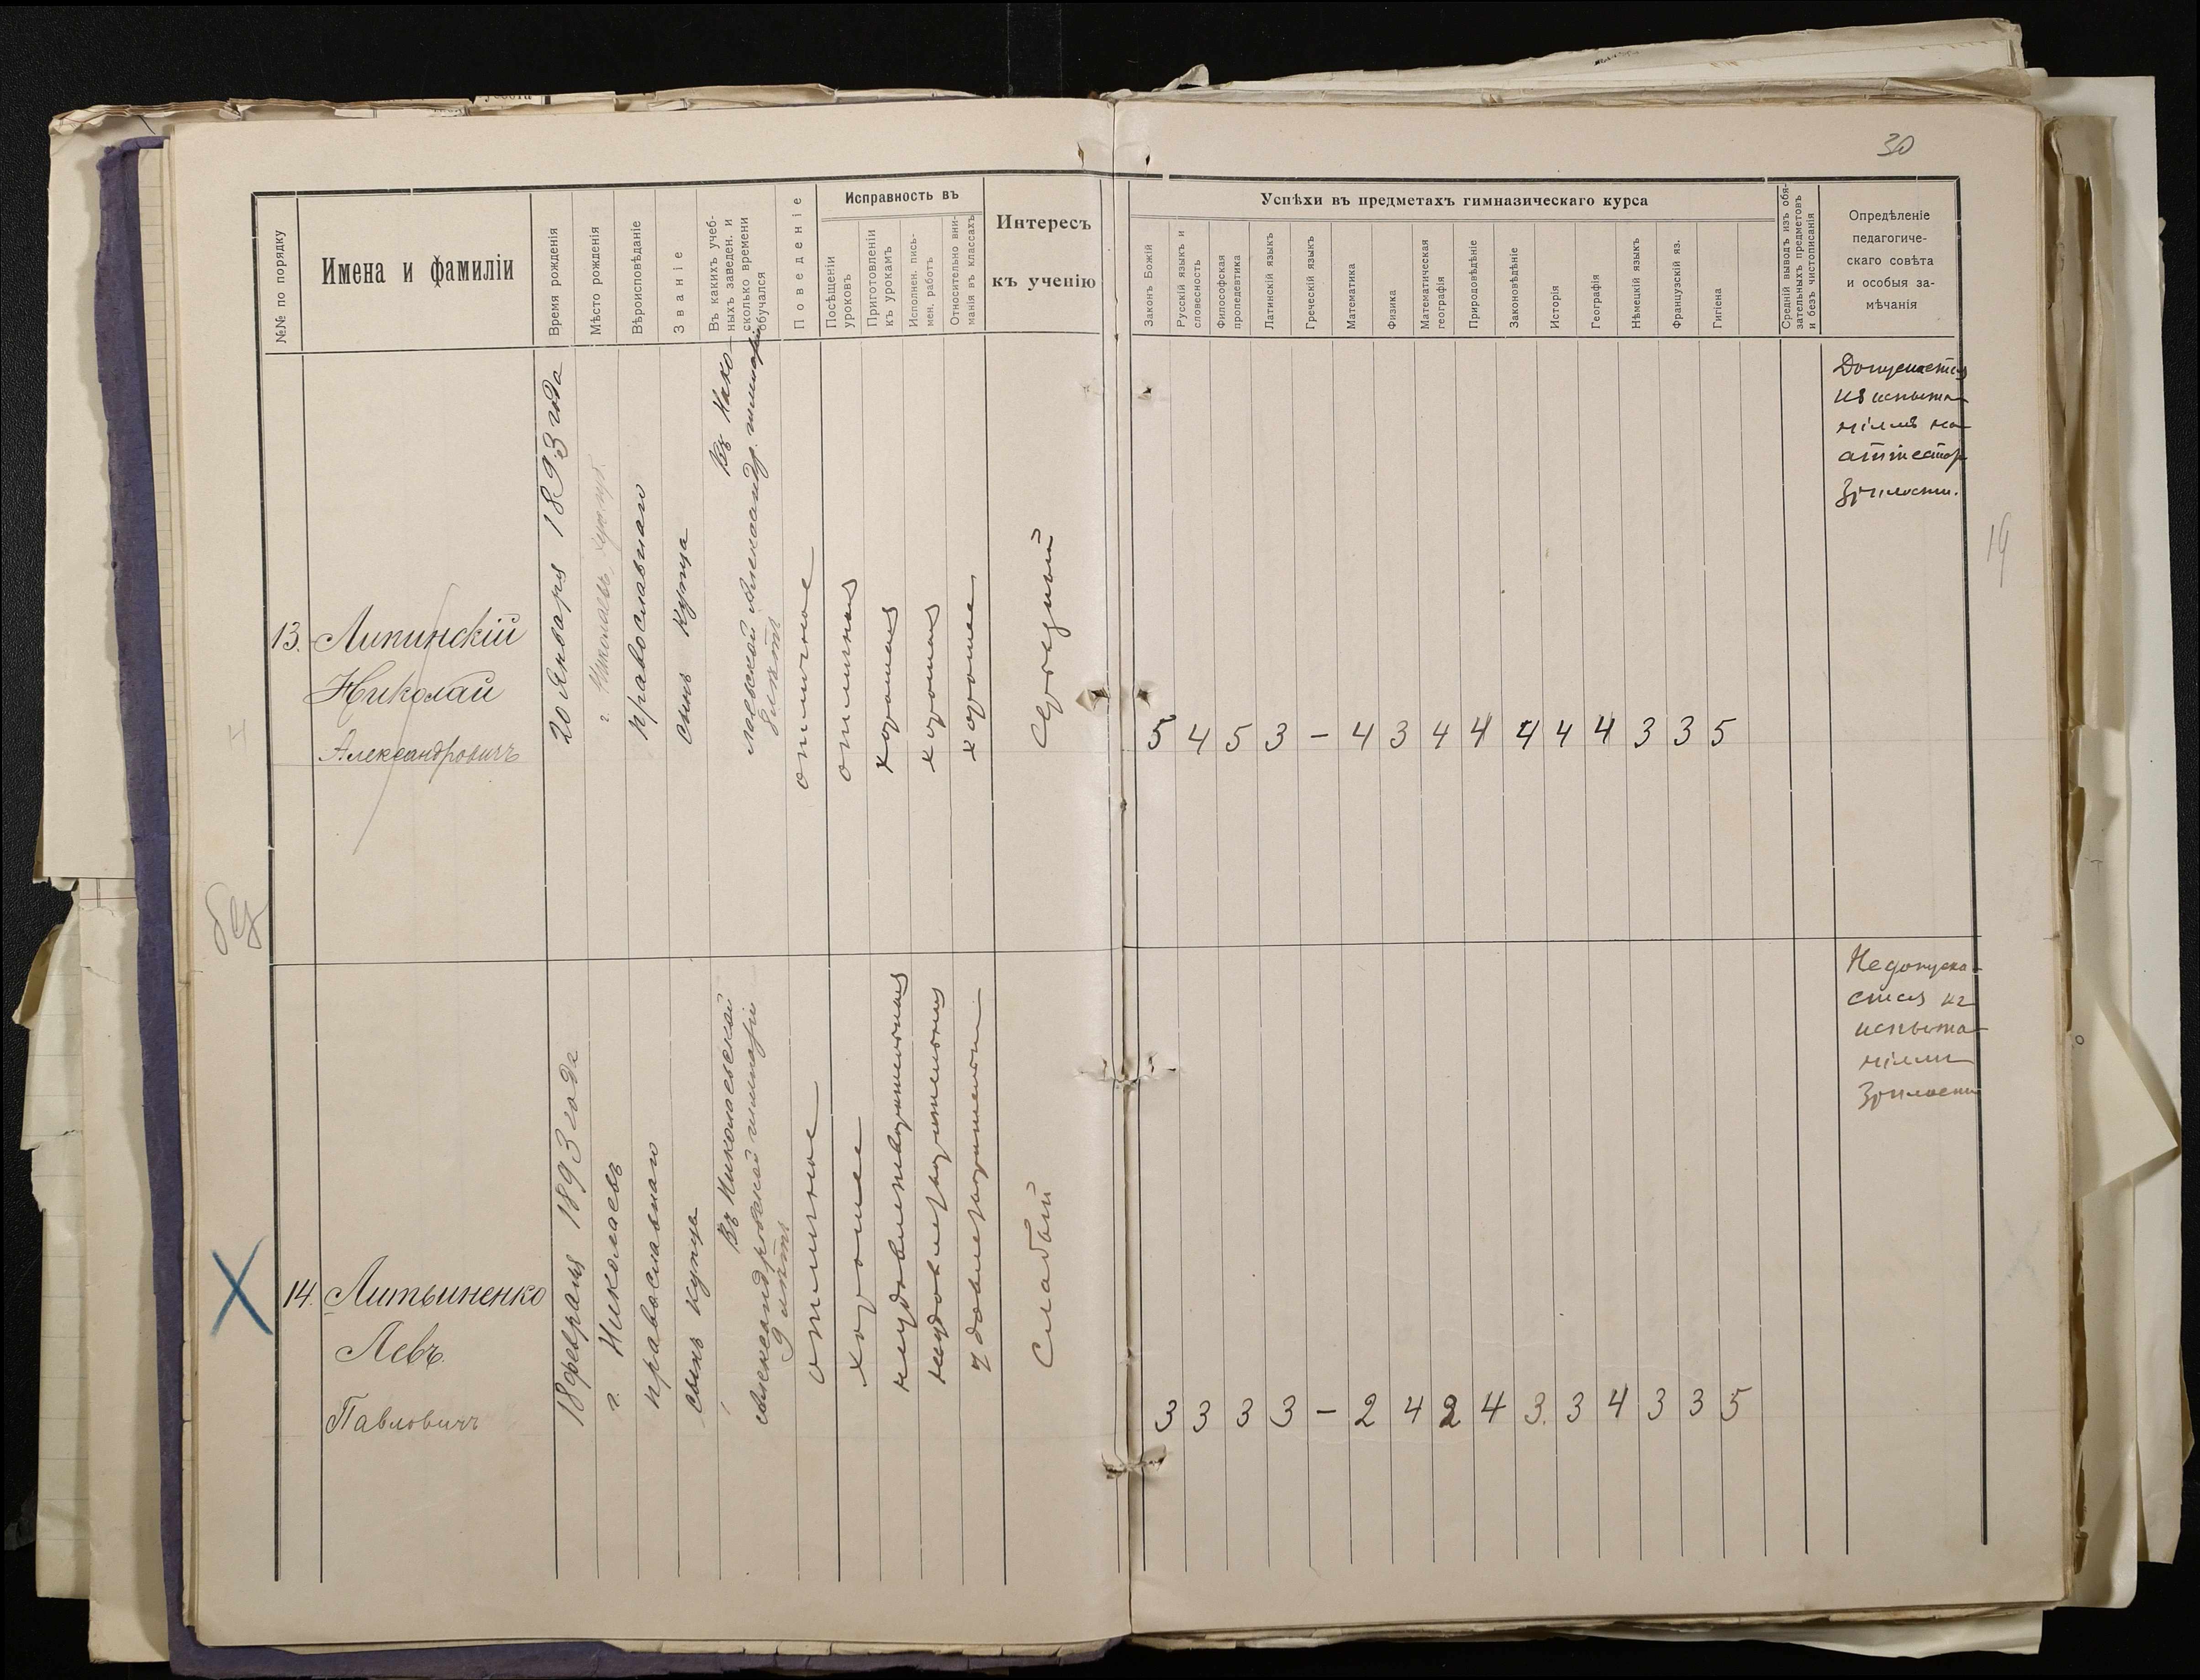 30
№№ по порядку
Имена и фамиліи
Время рожденія
Мѣсто рожденія
Вѣроисповѣданіе
Званіе
Въ какихъ учеб-
ныхъ заведен. и
сколько времени
обучался
Поведеніе
Исправность въ
Посѣщеніи
уроковъ
Приготовленіи
къ урокамъ
Исполнен. пись-
мен. работъ
Относительно вни-
манія въ классахъ
Интересъ
къ ученію
Успѣхи въ предметахъ гимназическаго курса
Законъ Божій
Русскій языкъ и
словесность
Философская
пропедевтика
Латинскій языкъ
Греческій языкъ
Математика
Физика
Математическая
географія
Природовѣдѣніе
Законовѣдѣніе
Исторія
Географія
Нѣмецкій языкъ
Французскій яз.
Гигіена
Средній выводъ изъ обя-
зательныхъ предметовъ
и безъ чистописанія
Опредѣленіе
педагогиче-
скаго совѣта
и особыя за-
мѣчанія
13. Липинскій
Николай
Александровичъ
20 Января 1893 года
г. Николаевъ,
православнаго
сынъ купца
Въ Нико-
лаевской Александр. гимназіи
8 лѣтъ
отличное
отличная
хорошая
хорошая
хорошее
Средній
5 4 5 3 – 4 3 4 4 4 4 4 3 3 5
Допускается
къ испыта-
ніямъ на
аттестатъ
Зрѣлости.
14. Литвиненко
Левъ
Павловичъ
18 февраля 1893 года
г. Николаевъ
православнаго
сынъ купца
Въ Николаевской
Александровской гимназіи
9 лѣтъ
отличное
хорошее
неудовлетворительная
неудовлетворительная
удовлетворительн
Слабый
3 3 3 3 – 2 4 2 4 3. 3 4 3 3 5
Не допуска-
ется къ
испыта-
ніямъ
Зрѣлости